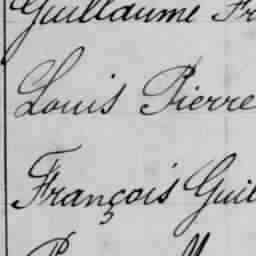 Guillaume Fr
Louis Pierre
François Guil